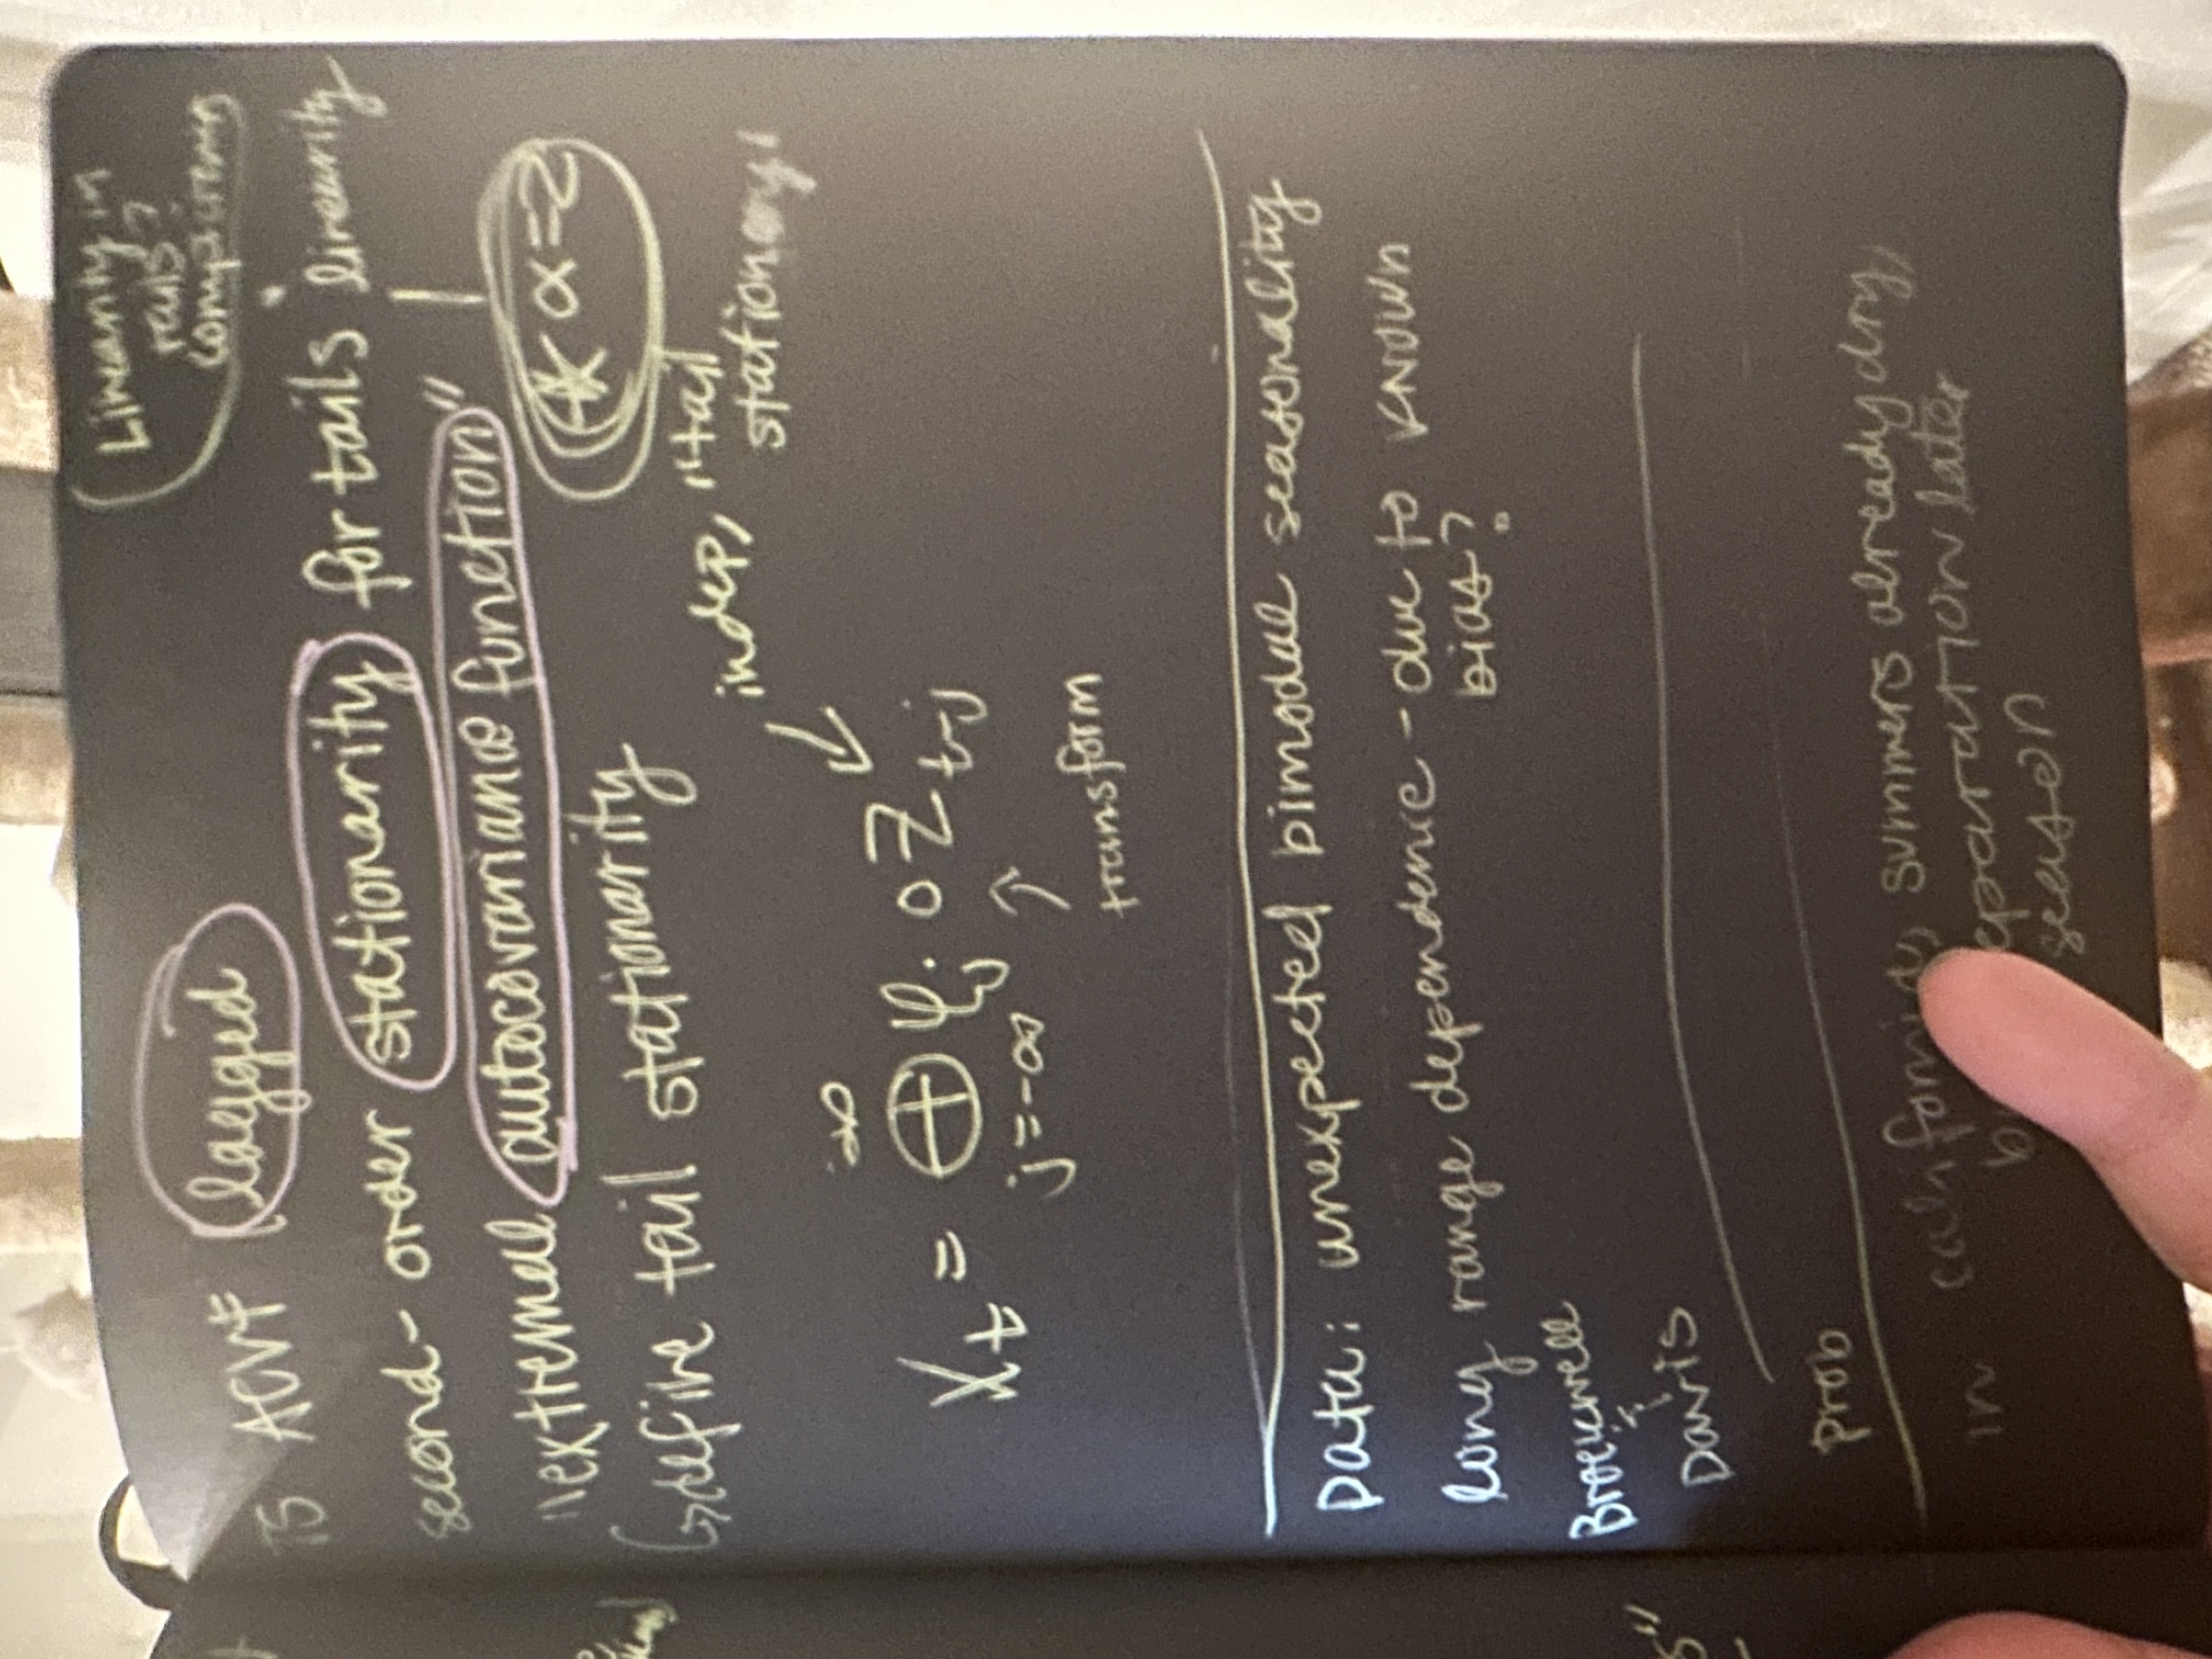 Linearity in
tails?
comparing
TS ACVF lagged
second-order stationarity for tails linearity
"extremal autocovariance function"
* α=2
↳ define tail stationarity
indep, "tail
stationary"
∞
X_t = ⊕ ψ_j ∘ Z_{t-j}
j=-∞
transform
Data: unexpected bimodal seasonality
long range dependence - due to known
bias?
Brockwell
&
Davis
prob
in California, summers already dry,
separation later
season